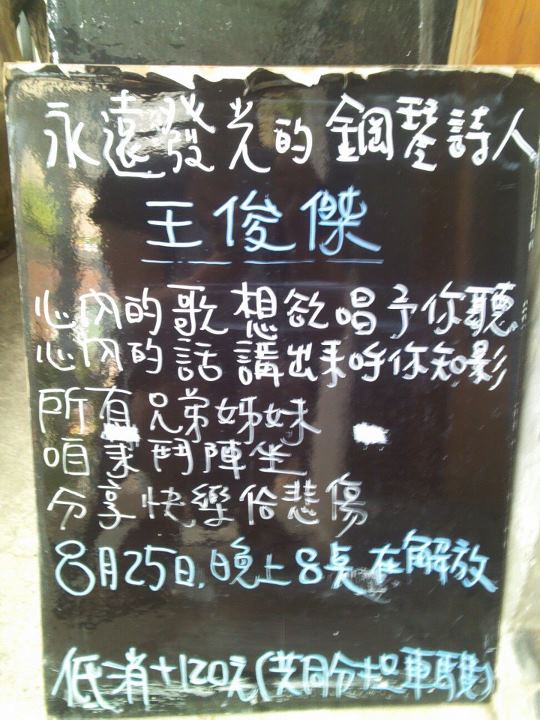 永遠發光的鋼琴詩人
王俊傑
心內的歌想欲唱予你聽
心內的話講出來呼你知影
所有兄弟姊妹
咱來鬥陣坐
分享快樂佮悲傷
8月25日.晚上8點在解放
低消+120元(共同分担車騹)